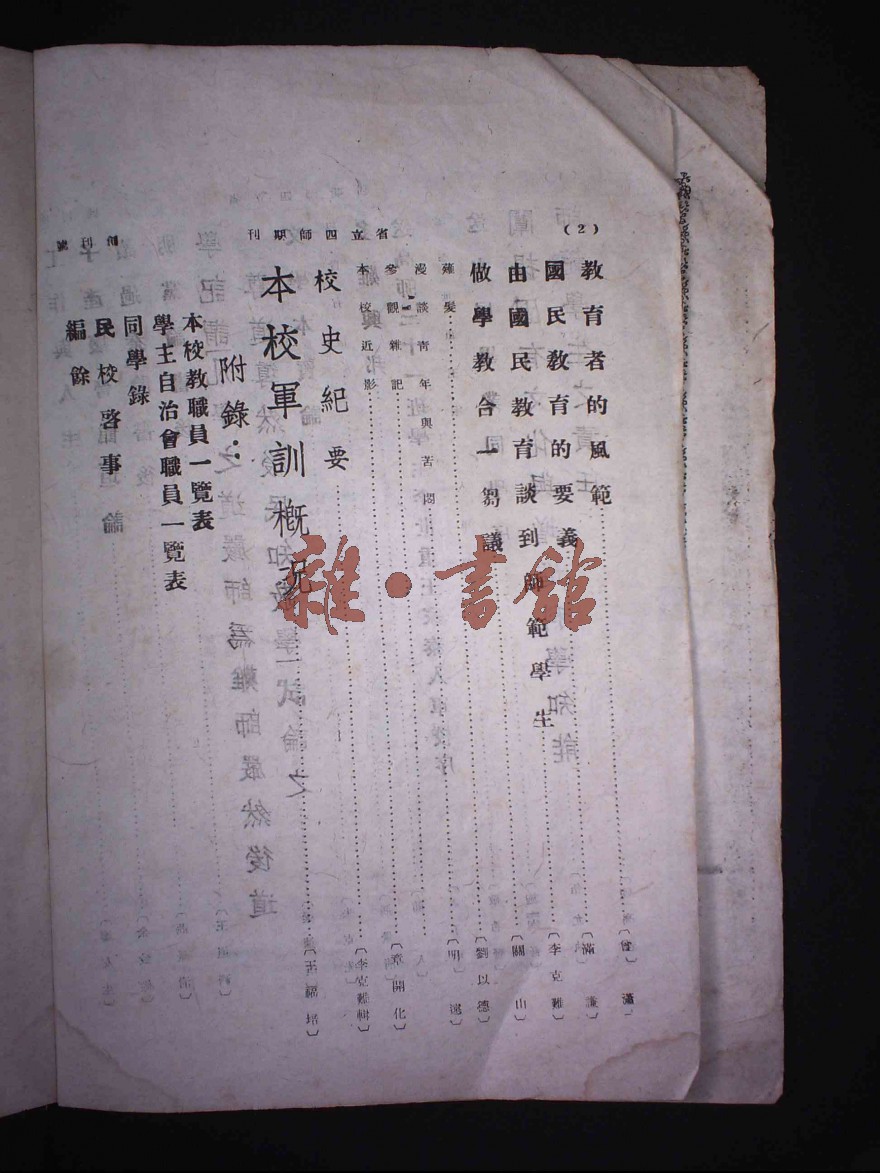 (2)
教育者的風範〔曾瀟〕
國民教育的要義〔滿謙〕
由國民教育談到師範學生〔李克難〕
做學教合一芻議〔關山〕
薙髮〔劉以德〕
漫談青年與苦悶〔明遠〕
參觀雜記〔章開化〕
本校近影
校史紀要〔李克難輯〕
本校軍訓概況〔王福培〕
附錄：
本校教職員一覽表
學主自治會職員一覽表
同學錄
民校啓事
編餘
省立四師期刊
雜·書館